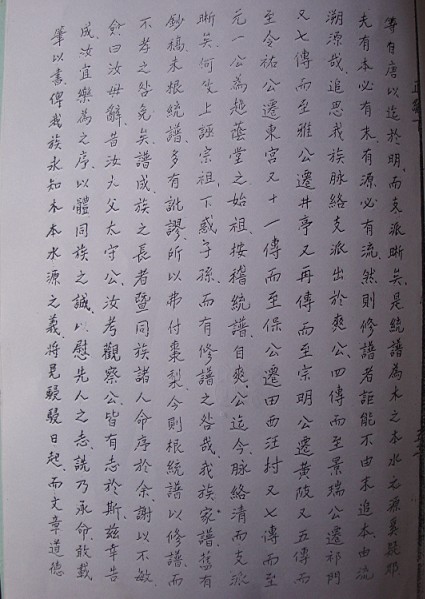 等自唐以迄於明而支派晰矣是統譜為木之本水之源奚疑耶
夫有本必有末有源必有流然則修譜者詎能不由本追本由流
溯源哉追思我族脉絡支派出於爽公四傳而至景瑞公遷祁門
又七傳而至雅公遷井亭又再傳而至宗明公遷黃陂又五傳而
至令祐公遷東宫又十一傳而至保公遷田西汪村又七傳而至
元一公為越蔭堂之始祖按稽統譜自爽公迄今脉絡清而支派
晰矣何生上誣宗祖下惑子孫而有修譜之咎哉我族家譜舊有
鈔稿未根統譜多有訛謬所以弗付棗梨今則根統譜以修譜而
不孝之咎免矣譜成族之長者暨同族諸人命序於余謝以不敏
僉曰汝毋辭昔汝大父太守公汝考觀察公皆有志於斯兹幸告
成汝宜樂為之序以體同族之誠以慰先人之志説乃承命敢載
筆以書俾我族永知木本水源之義將見駸駸日起而文章道德